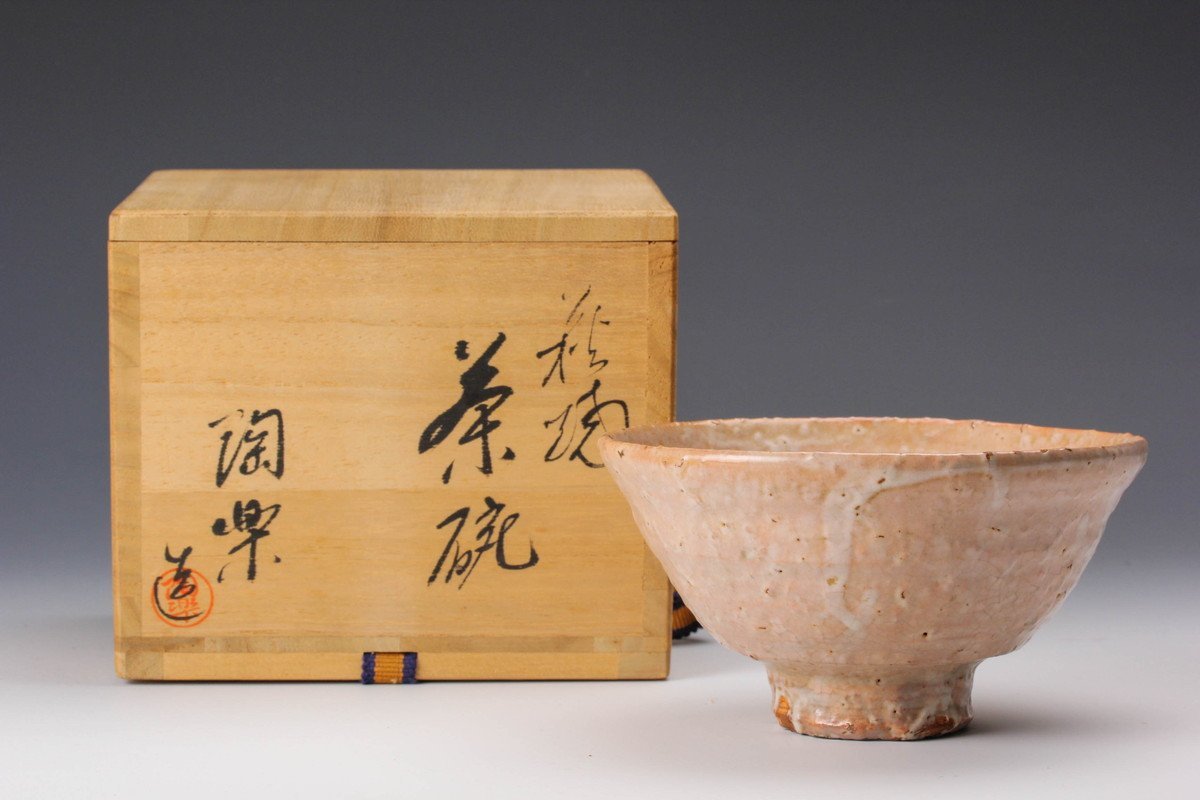 萩焼
茶碗
陶楽
造